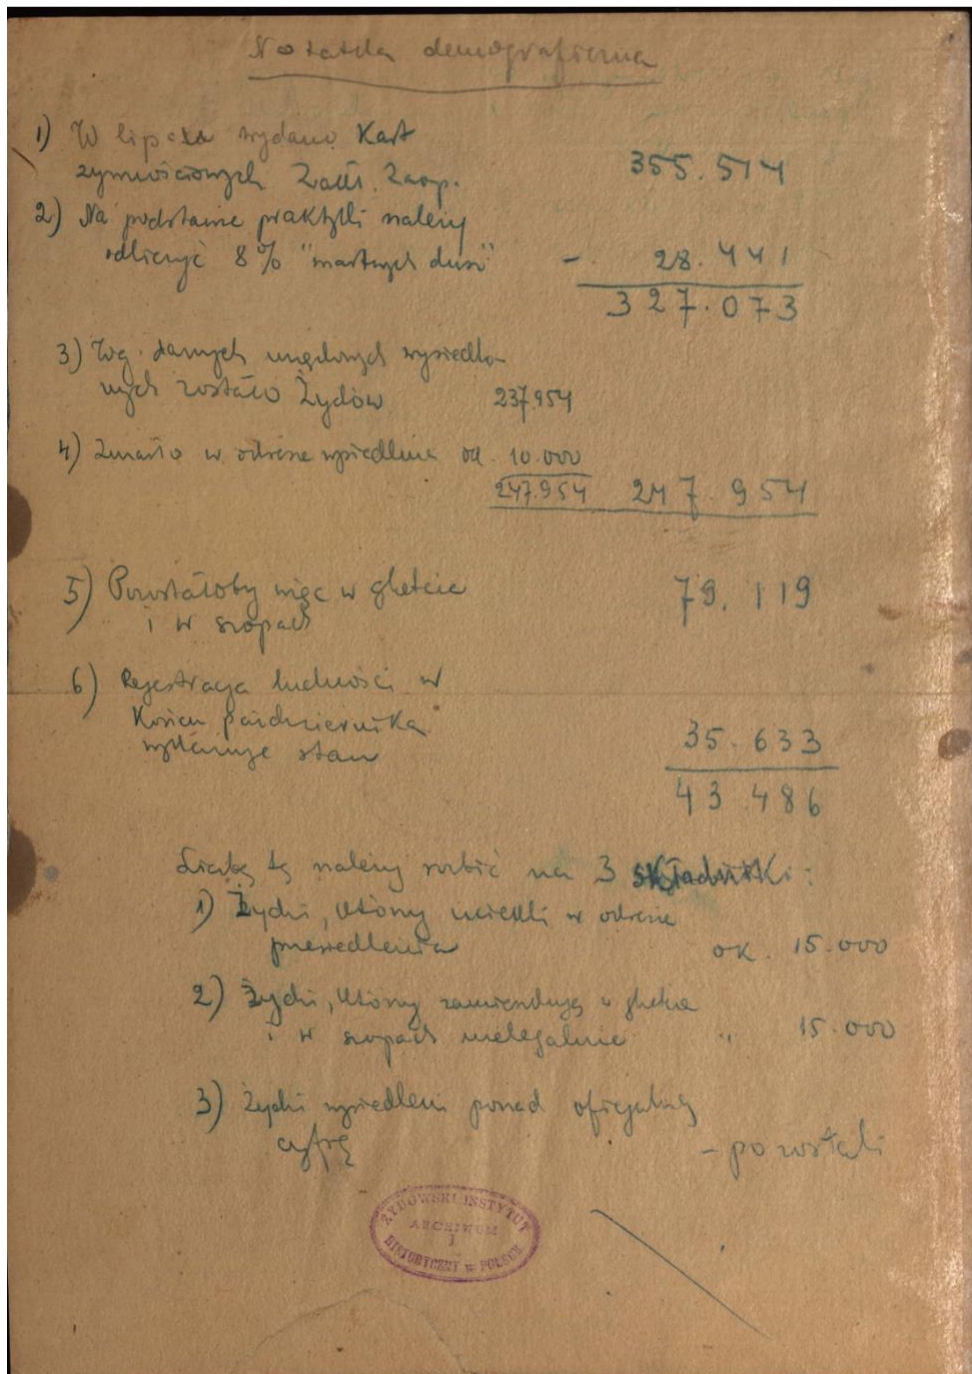 Notatka demograficzna
1) W lipcu wydano Kart
żywnościowych Zakł. Zaop. 355.514
2) Na podstawie praktyki należy
odliczyć 8% "martwych dusz" - 28.441
327.073
3) Wg. danych urzędowych wysiedlo-
nych zostało Żydów 237.954
4) Zmarło w okresie wysiedlenia ok. 10.000
247.954 247.954
5) Pozostałoby więc w ghetcie
i w szopach 79.119
6) Rejestracja ludności w
Końcu października
wykazuje stan 35.633
43.486
Liczbę tę należy rozbić na 3 składniki:
1) Żydzi, którzy uciekli w okresie
przesiedlenia ok. 15.000
2) Żydzi, którzy zamieszkują w ghetcie
i w szopach nielegalnie " 15.000
3) Żydzi wysiedleni ponad oficjalną
cyfrę - pozostali
ŻYDOWSKI INSTYTUT
ARCHIWUM
I
HISTORYCZNY w POLSCE